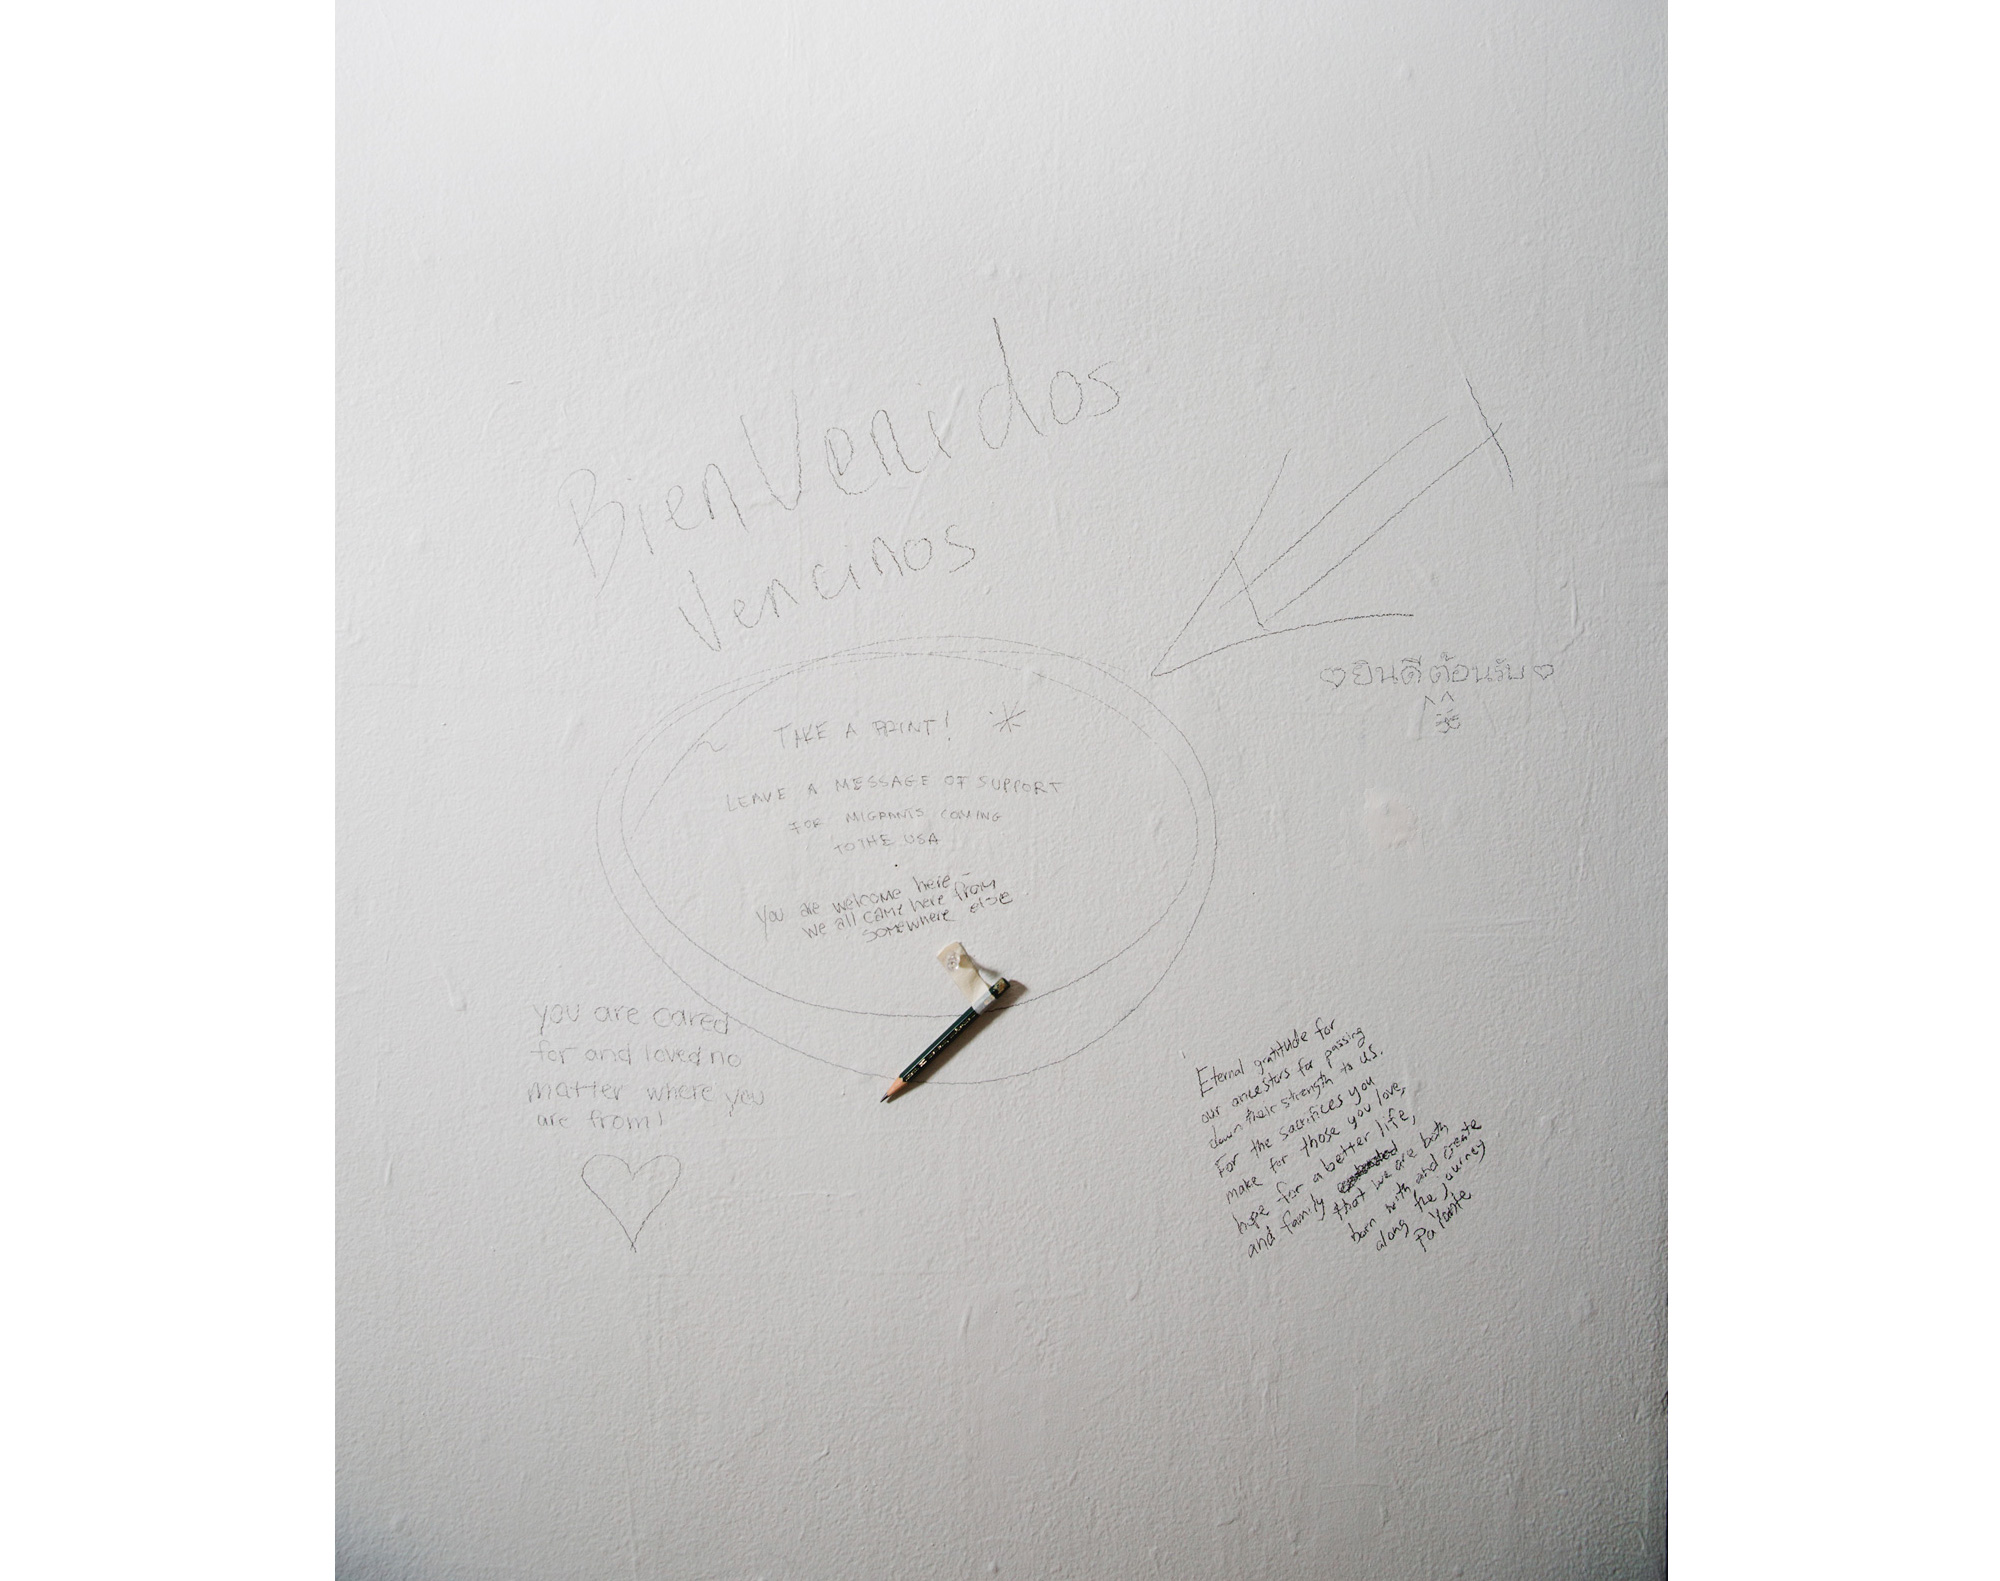 BienVenidos
Vencinos
♡ยินดีต้อนรับ♡
TAKE A PRINT!
LEAVE A MESSAGE OF SUPPORT
FOR MIGRANTS COMING
TO THE USA
you are welcome here –
we all came here from
somewhere else
you are cared
for and loved no
matter where you
are from!
Eternal gratitude for
our ancestors for passing
down their strength to us.
For the sacrifices you
make for those you love,
hope for a better life,
and family that we are both
born with and create
along the journey